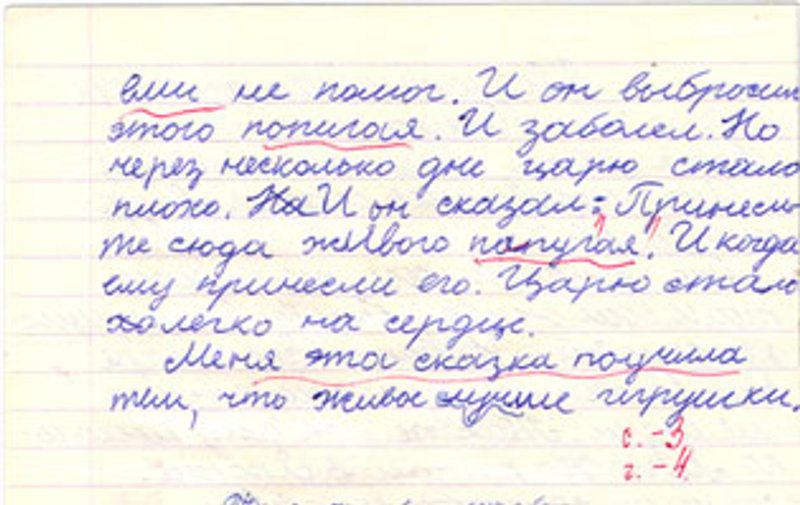 еми не помог. И он выбросил
этого попигая. И заболел. Но
через несколько дне царю стало
плохо. И он сказал: "Принеси-
те сюда живого попугая". И когда
ему принесли его. Царю стало
легко на сердце.
Меня эта сказка поучила
тем, что живое лучше игрушки.
с. -3
г. -4